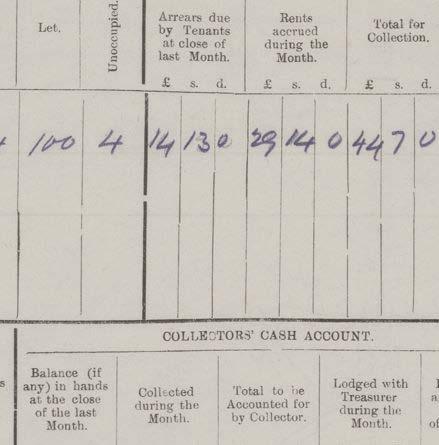 Let.
Unoccupied.
Arrears due
by Tenants
at close of
last Month.
£ s. d.
Rents
accrued
during the
Month.
£ s. d.
Total for
Collection.
£ s. d.
100 4 14 13 0 29 14 0 44 7 0
COLLECTORS' CASH ACCOUNT.
Balance (if
any) in hands
at the close
of the last
Month.
Collected
during the
Month.
Total to be
Accounted for
by Collector.
Lodged with
Treasurer
during the
Month.